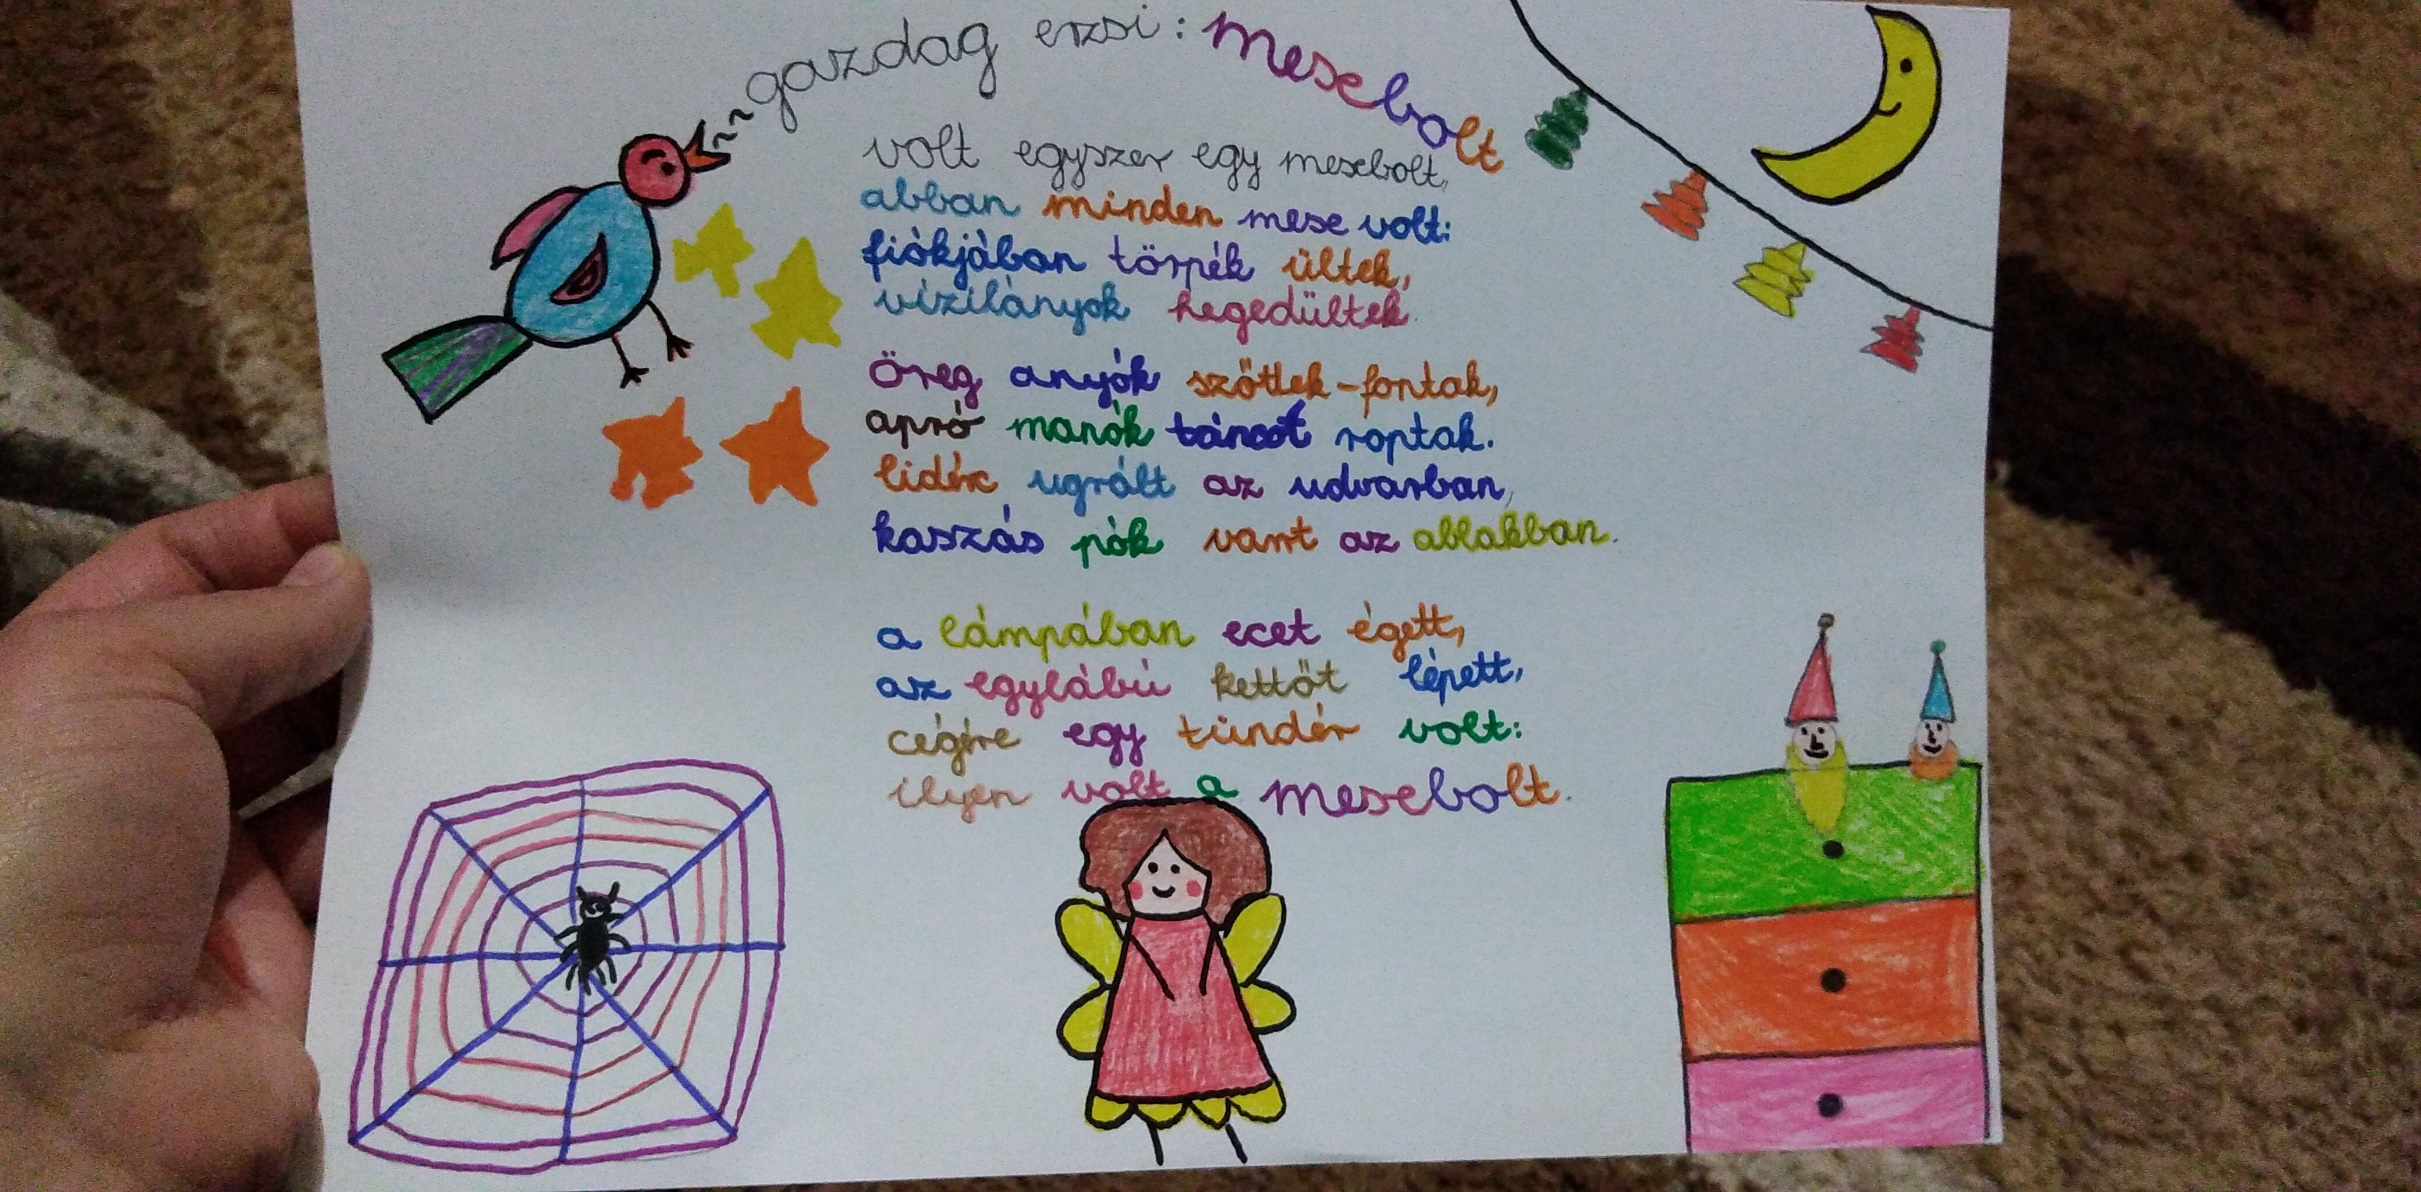 gazdag erzsi: mesebolt
volt egyszer egy mesebolt,
abban minden mese volt:
fiókjában törpék ültek,
vízilányok hegedültek.
öreg anyók szőttek-fontak,
apró manók táncot roptak.
lidérc ugrált az udvarban,
kaszás pók várt az ablakban.
a lámpában ecet égett,
az egylábú kettőt lépett,
cégére egy tündér volt:
ilyen volt a mesebolt.